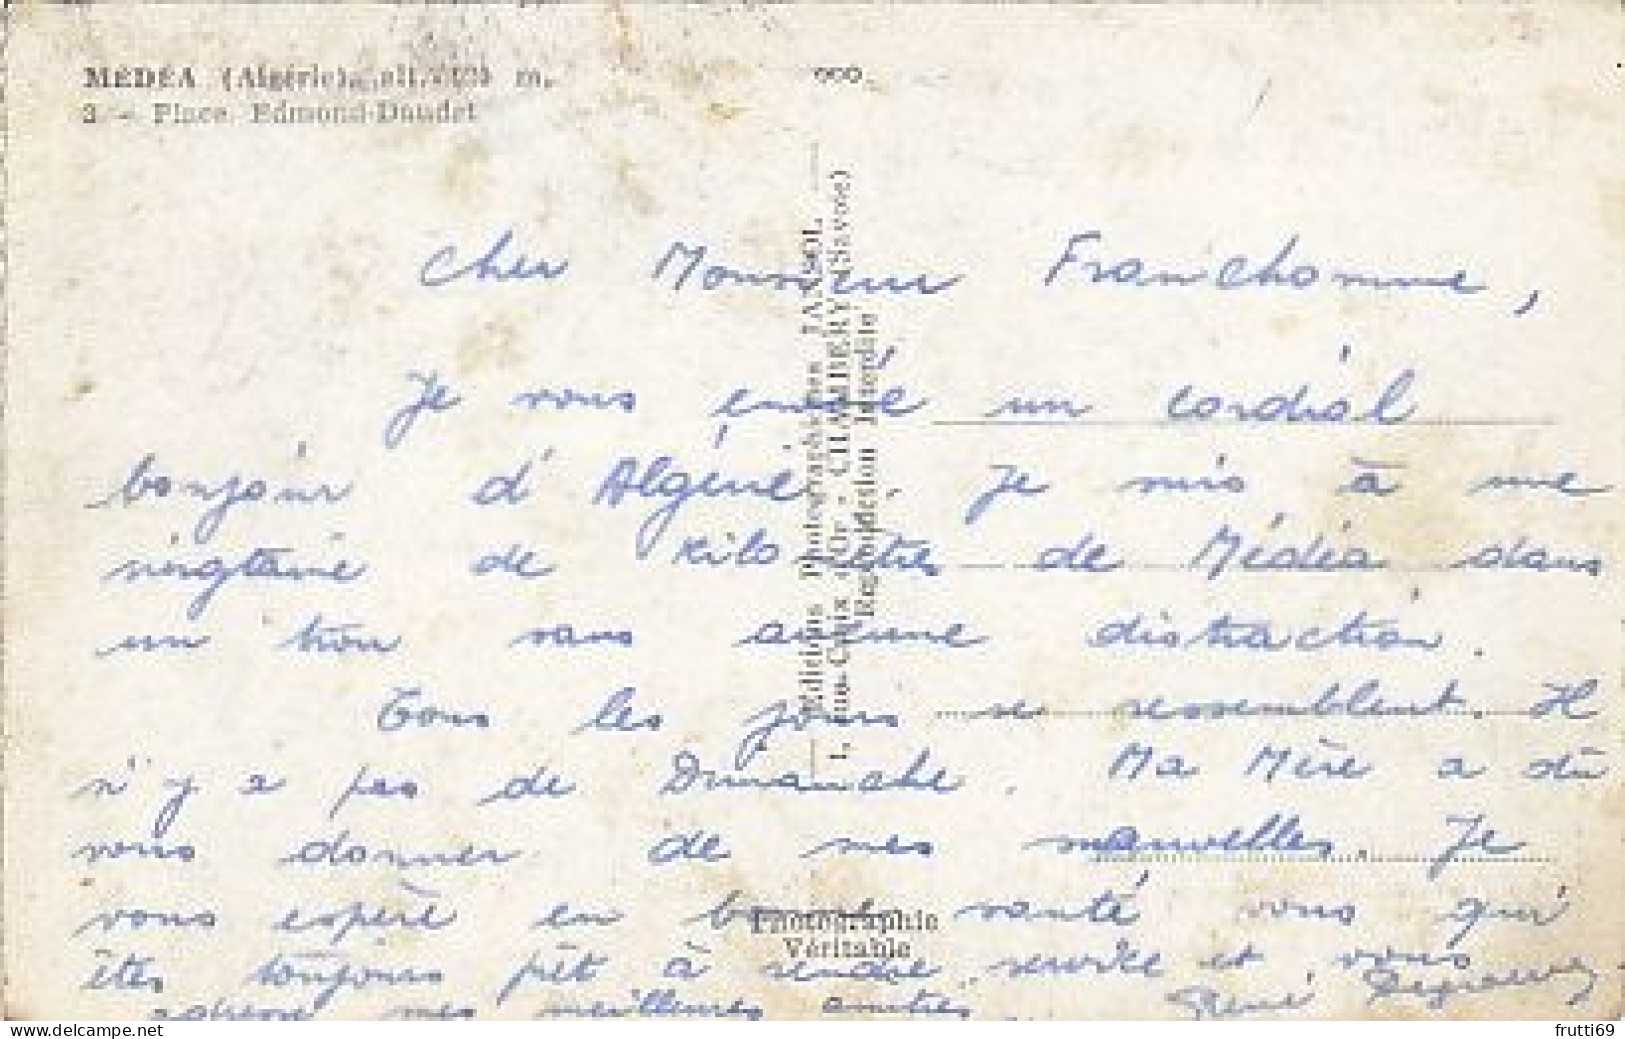 MÉDÉA (Algérie). alt. m.
3. - Place Edmond-Daudet
Cher Monsieur Franchomme,
Je vous envoie un cordial
bonjour d'Algérie. Je suis à une
vingtaine de kilomètres de Médéa dans
un trou sans aucune distraction.
Tous les jours se ressemblent. Il
n'y a pas de Dimanche. Ma Mère a dû
vous donner de mes nouvelles. Je
vous espère en bonne santé vous qui
êtes toujours prêt à rendre service et vous
adresse mes meilleures amitiés
René
Éditions Photographiques JANSOL
CHAMBÉRY (Savoie)
Reproduction Interdite
Photographie
Véritable
frutti69